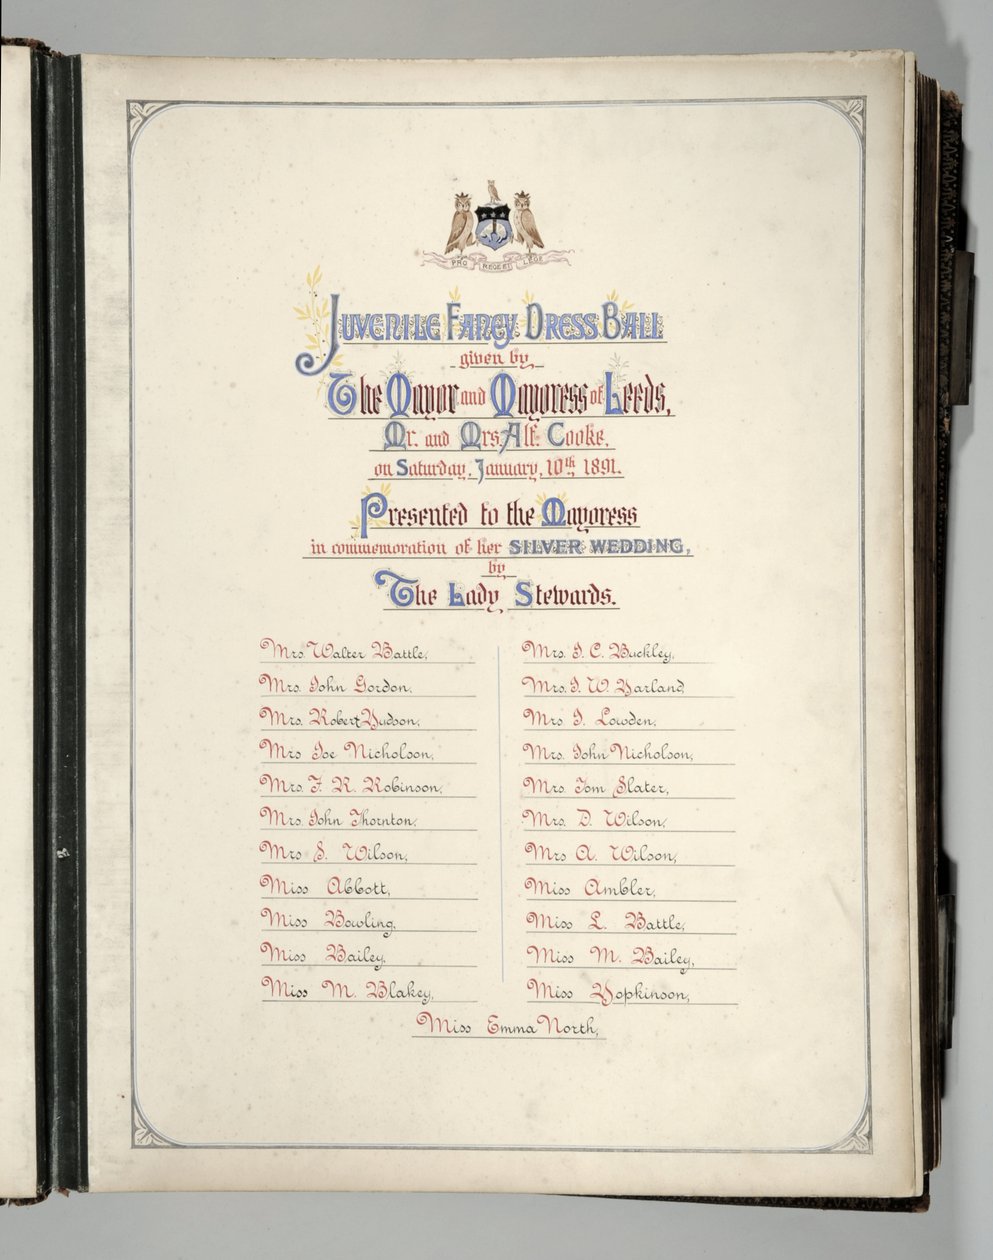 PRO REGE ET LEGE
JUVENILE FANCY DRESS BALL
given by
The Mayor and Mayoress of Leeds,
Mr. and Mrs. Alf. Cooke,
on Saturday, January, 10th 1891.
Presented to the Mayoress
in commemoration of her SILVER WEDDING,
by
The Lady Stewards.
Mrs. Walter Battle,
Mrs. John Gordon,
Mrs. Robert Hudson,
Mrs Joe Nicholson,
Mrs. F. R. Robinson,
Mrs. John Thornton,
Mrs S. Wilson,
Miss Abbott,
Miss Bowling,
Miss Bailey,
Miss M. Blakey,
Mrs. J. C. Buckley,
Mrs. J. W. Harland
Mrs J. Lowden,
Mrs. John Nicholson,
Mrs Tom Slater,
Mrs. D. Wilson,
Mrs A. Wilson,
Miss Ambler,
Miss L. Battle,
Miss M. Bailey,
Miss Hopkinson,
Miss Emma North,